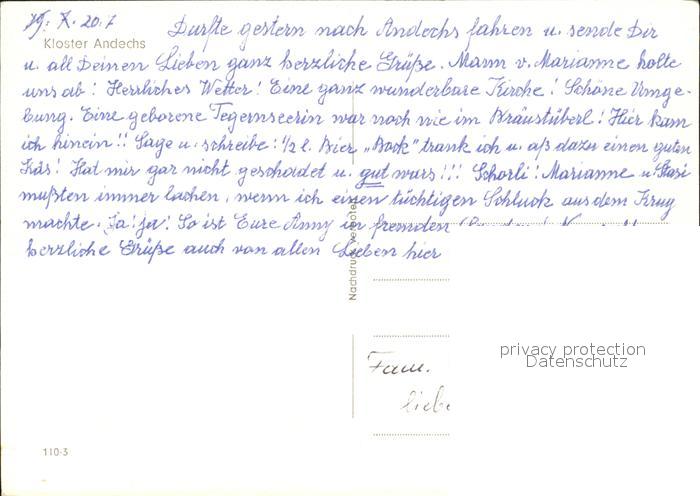 Durfte gestern nach Andechs fahren u. sende Dir
Kloster Andechs
u. all Deinen Lieben ganz herzliche Grüße. Mann v. Marianne holte
uns ab! Herrliches Wetter! Eine ganz wunderbare Kirche! Schöne Umge-
bung. Eine geborene Tegernseerin war noch nie im Bräustüberl! Hier kam
ich hinein!! Sage u. schreibe: 1/2 l. Bier „Bock" trank ich u. aß dazu einen guten
Käs! Hat mir gar nicht geschadet u. gut wars!!! Schorli! Marianne u.
mußten immer lachen, wenn ich einen tüchtigen Schluck aus dem Krug
machte. Ja! ja! So ist Eure Anny in fremden
herzliche Grüße auch von allen Lieben hier
Nachdruck verboten
privacy protection
Datenschutz
Fam.
110-3